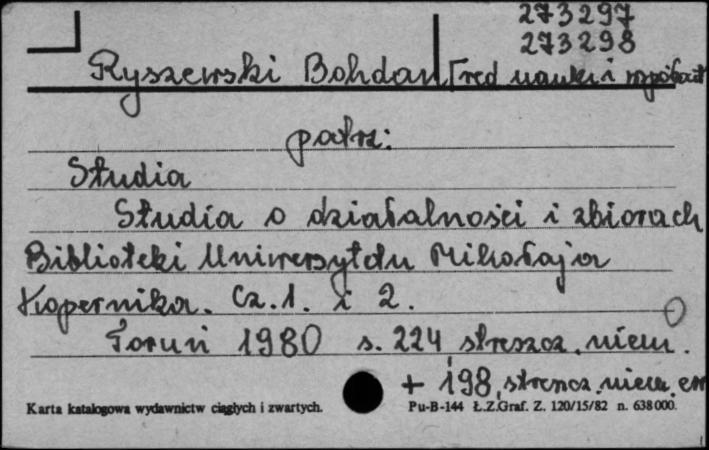 273297
273298
Ryszewski Bohdan [red nauk. i współaut
patrz:
Studia
Studia o działalności i zbiorach
Biblioteki Uniwersytetu Mikołaja
Kopernika. Cz. 1. i 2.
Toruń 1980 s. 224, streszcz. niem.
+ 198, streszcz. niem. em
Karta katalogowa wydawnictw ciągłych i zwartych. Pu-B-144 Ł.Z.Graf. Z. 120/15/82 n. 638000.